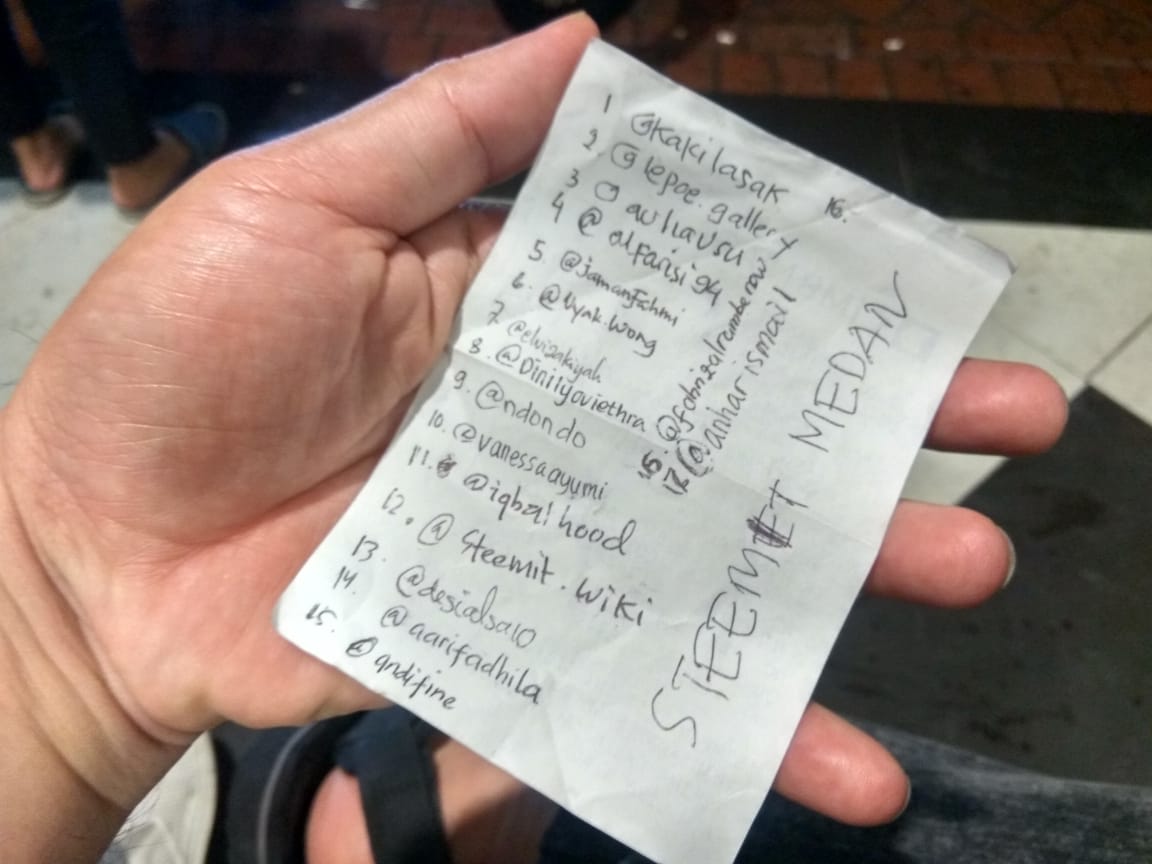 1 @kakilasak
2. @lepoe.gallery
3 @auliausu
4 @alfarisi94
5. @jamanfahmi
6. @Nyak.Wong
7. @elvizakiyah
8. @Diniiyoviethra
9. @ndondo
10. @vanessaayumi
11. @iqbalhood
12. @steemit.wiki
13. @desialsa10
14. @aarifadhila
15. @andifine
16.
16. @fahrizalramberow
17. @anharismail
STEEMIT MEDAN